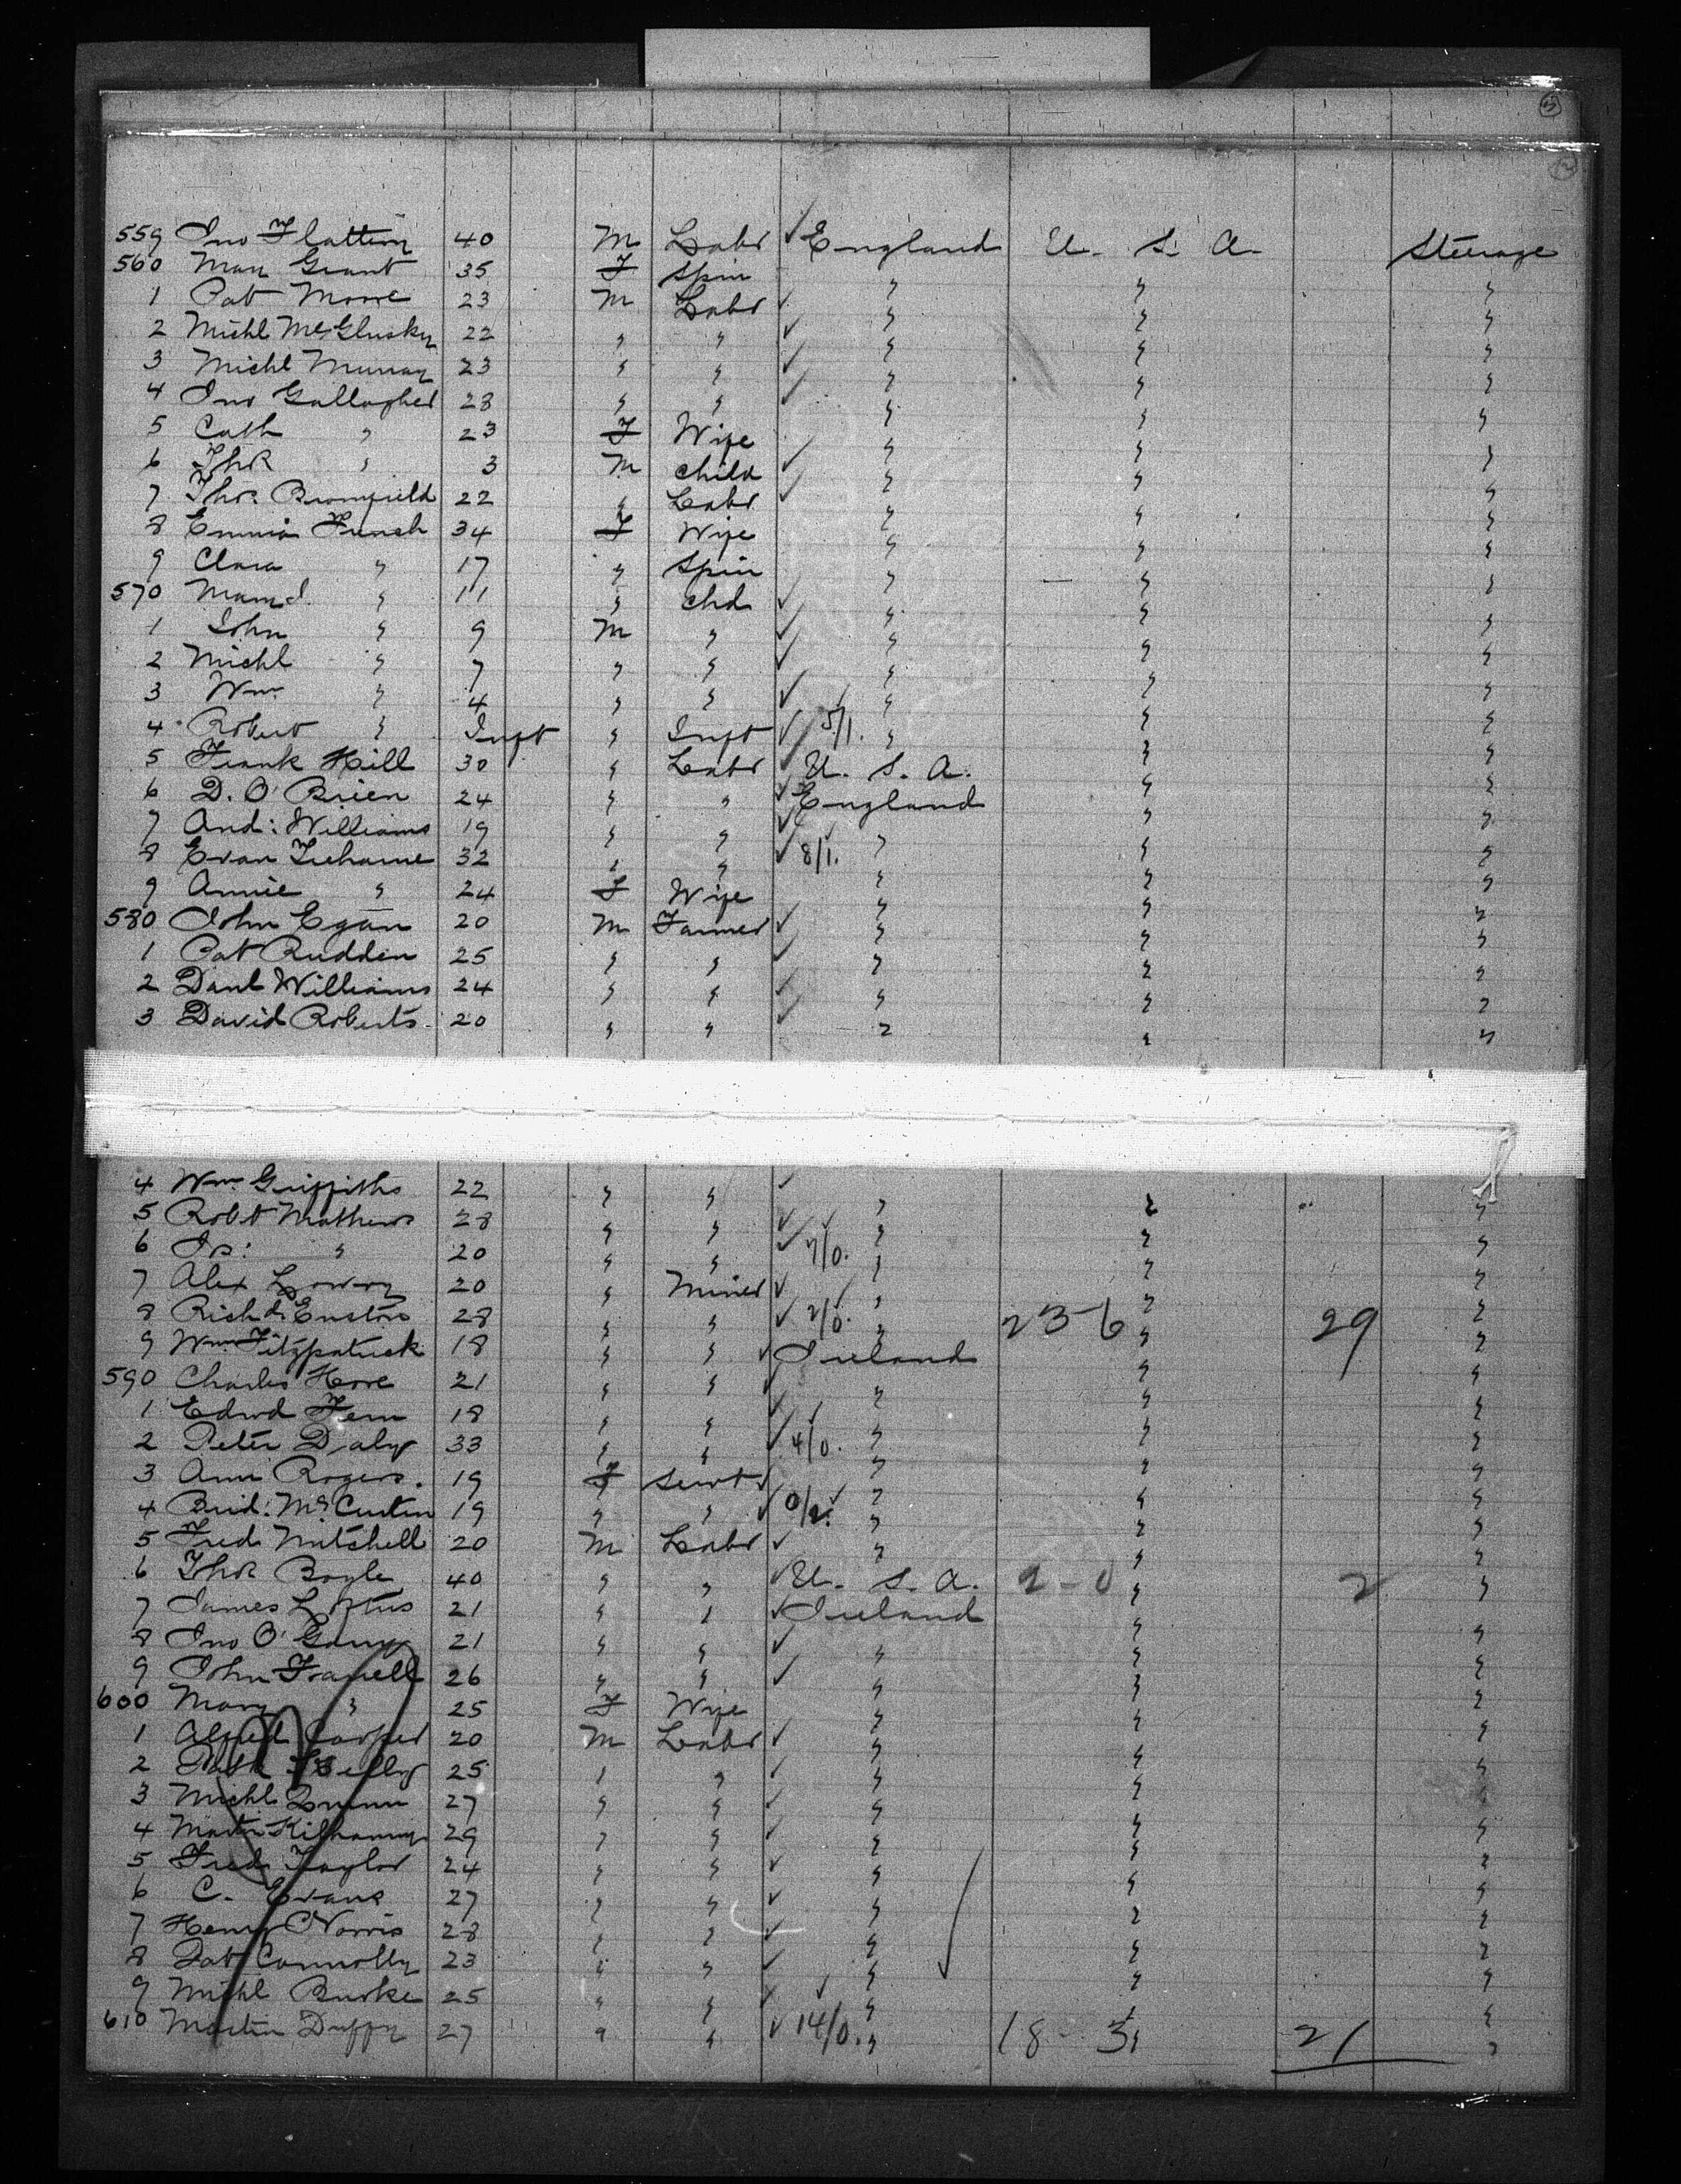 559 Jno Flattery 40 M Labr ✓ England U. S. A. Steerage
560 Mary Grant 35 F Spin " " "
1 Pat Moore 23 M Labr ✓ " " "
2 Michl McGlusky 22 " " ✓ " " "
3 Michl Murray 23 " " ✓ " " "
4 Jno Gallagher 28 " " ✓ " " "
5 Cath " 23 F Wife " " "
6 Thos " 3 M Child ✓ " " "
7 Thos. Bromfield 22 " Labr ✓ " " "
8 Emma French 34 F Wife " " "
9 Clara " 17 " Spin " " "
570 " 11 " Chd ✓ " " "
1 John " 9 M " ✓ " " "
2 Michl " 7 " " ✓ " " "
3 Wm. " 4 " " ✓ " " "
4 Robert " Inft " Inft ✓ 5/1. " " "
5 Frank Hill 30 " Labr ✓ U. S. A. " "
6 D. O'Brien 24 " " ✓ England " "
7 And: Williams 19 " " ✓ " " "
8 Evan Trehame 32 " " ✓ 8/1. " " "
9 Annie " 24 F Wife " " "
580 John Egan 20 M Farmer ✓ " " "
1 Pat Rudden 25 " " ✓ " " "
2 Danl Williams 24 " " ✓ " " "
3 David Roberts 20 " " ✓ " " "
4 Wm. Griffiths 22 " " ✓ " " "
5 Robt Mathews 28 " " ✓ " " "
6 Js: " 20 " " ✓ 7/0. " " "
7 Alex Lowry 20 " Miner ✓ " " "
8 Richd 28 " " ✓ 2/0. " 23-6 " 29 "
9 Wm. Fitzpatrick 18 " " ✓ Ireland " "
590 Charles Hore 21 " " ✓ " " "
1 Edwd Fern 18 " " ✓ " " "
2 Peter Daly 33 " " ✓ 4/0. " " "
3 Ann Rogers. 19 F Servt ✓ " " "
4 Brid: McCurtin 19 " " ✓ 0/2. " " "
5 Fred Mitchell 20 M Labr ✓ " " "
6 Thos Boyle 40 " " ✓ U. S. A. 2-0 " 2 "
7 James Loftus 21 " " ✓ Ireland " "
8 Jno O'Garry 21 " " ✓ " " "
9 John Farrell 26 " " ✓ " " "
600 Mary " 25 F Wife " " "
1 Alfred Cooper 20 M Labr ✓ " " "
2 Patk Kelly 25 " " ✓ " " "
3 Michl Quinn 27 " " ✓ " " "
4 Martin 29 " " ✓ " " "
5 Fred Taylor 24 " " ✓ " " "
6 C. Evans 27 " " ✓ " " "
7 Henry Norris 28 " " ✓ " " "
8 Pat Connolly 23 " " ✓ " " "
9 Michl Burke 25 " " ✓ " " "
610 Martin Duffy 27 " " ✓ 14/0. " 18-3 " 21 "